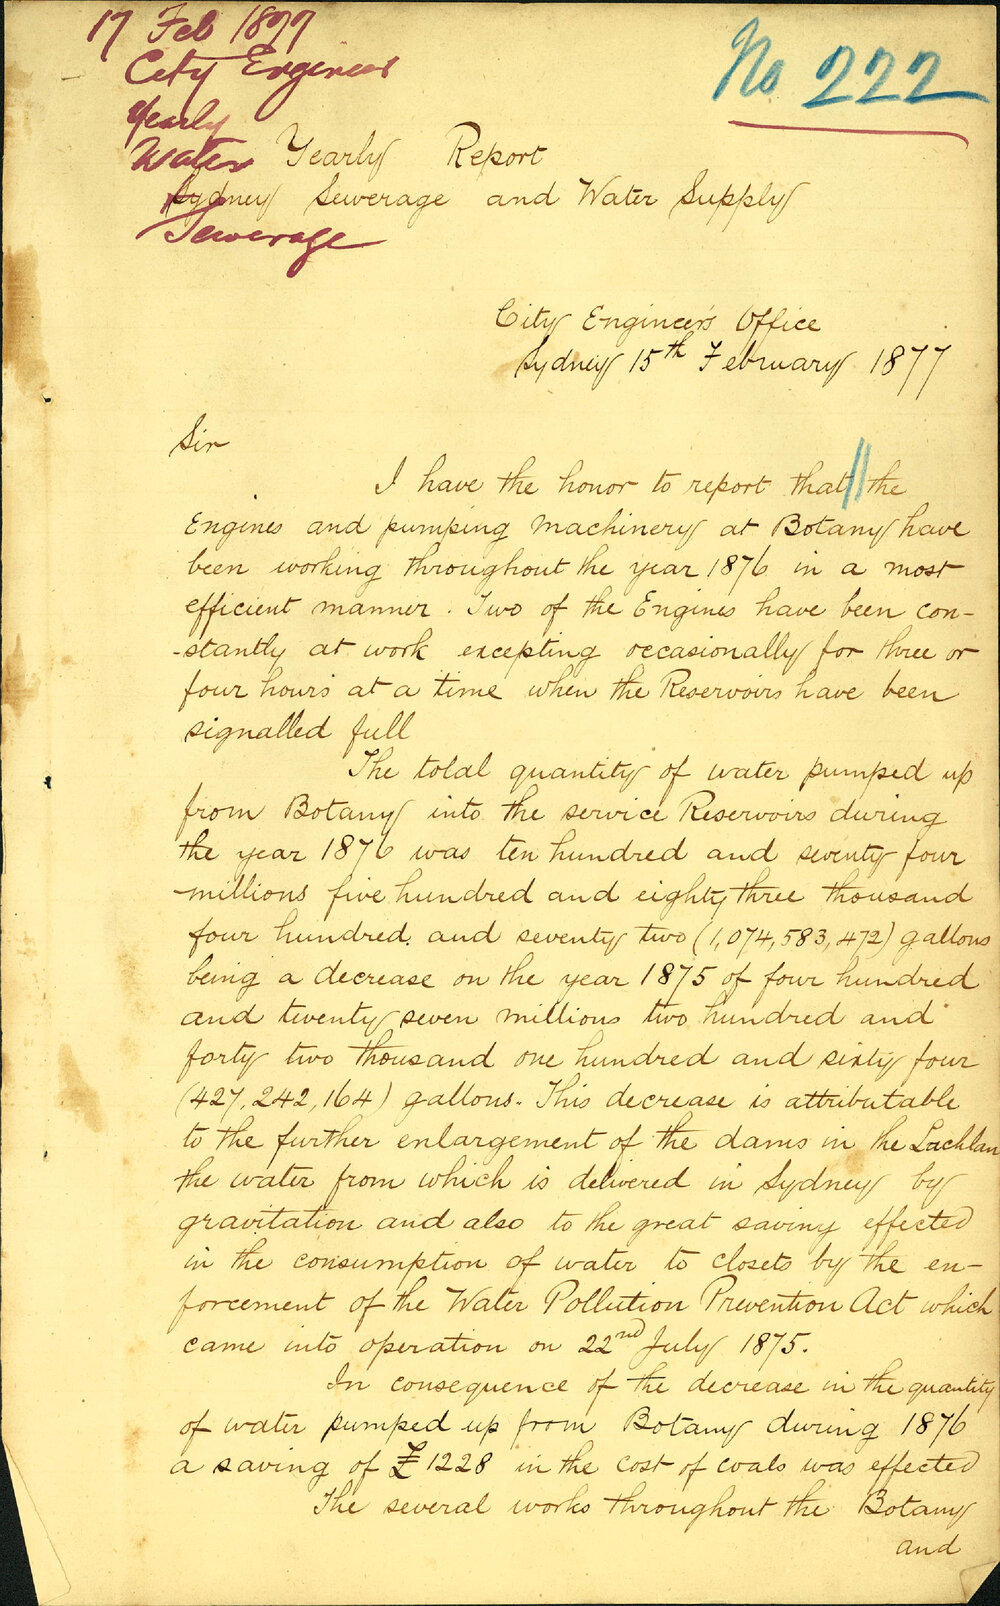 17 Feb 1877
City Engineer
Yearly
Water
Sewerage
No 222
Yearly Report
Sydney Sewerage and Water Supply
City Engineer's Office
Sydney 15th February 1877
Sir
I have the honor to report that // the
Engines and pumping Machinery at Botany have
been working throughout the year 1876 in a most
efficient manner. Two of the Engines have been con-
-stantly at work excepting occasionally for three or
four hours at a time when the Reservoirs have been
signalled full
The total quantity of water pumped up
from Botany into the service Reservoirs during
the year 1876 was ten hundred and seventy four
millions five hundred and eighty three thousand
four hundred and seventy two (1,074,583,472) gallons
being a decrease on the year 1875 of four hundred
and twenty seven millions two hundred and
forty two thousand one hundred and sixty four
(427,242,164) gallons. This decrease is attributable
to the further enlargement of the dams in the Lachlan
the water from which is delivered in Sydney by
gravitation and also to the great saving effected
in the consumption of water to closets by the en-
forcement of the Water Pollution Prevention Act which
came into operation on 22nd July 1875.
In consequence of the decrease in the quantity
of water pumped up from Botany during 1876
a saving of £1228 in the cost of coals was effected
The several works throughout the Botany
and